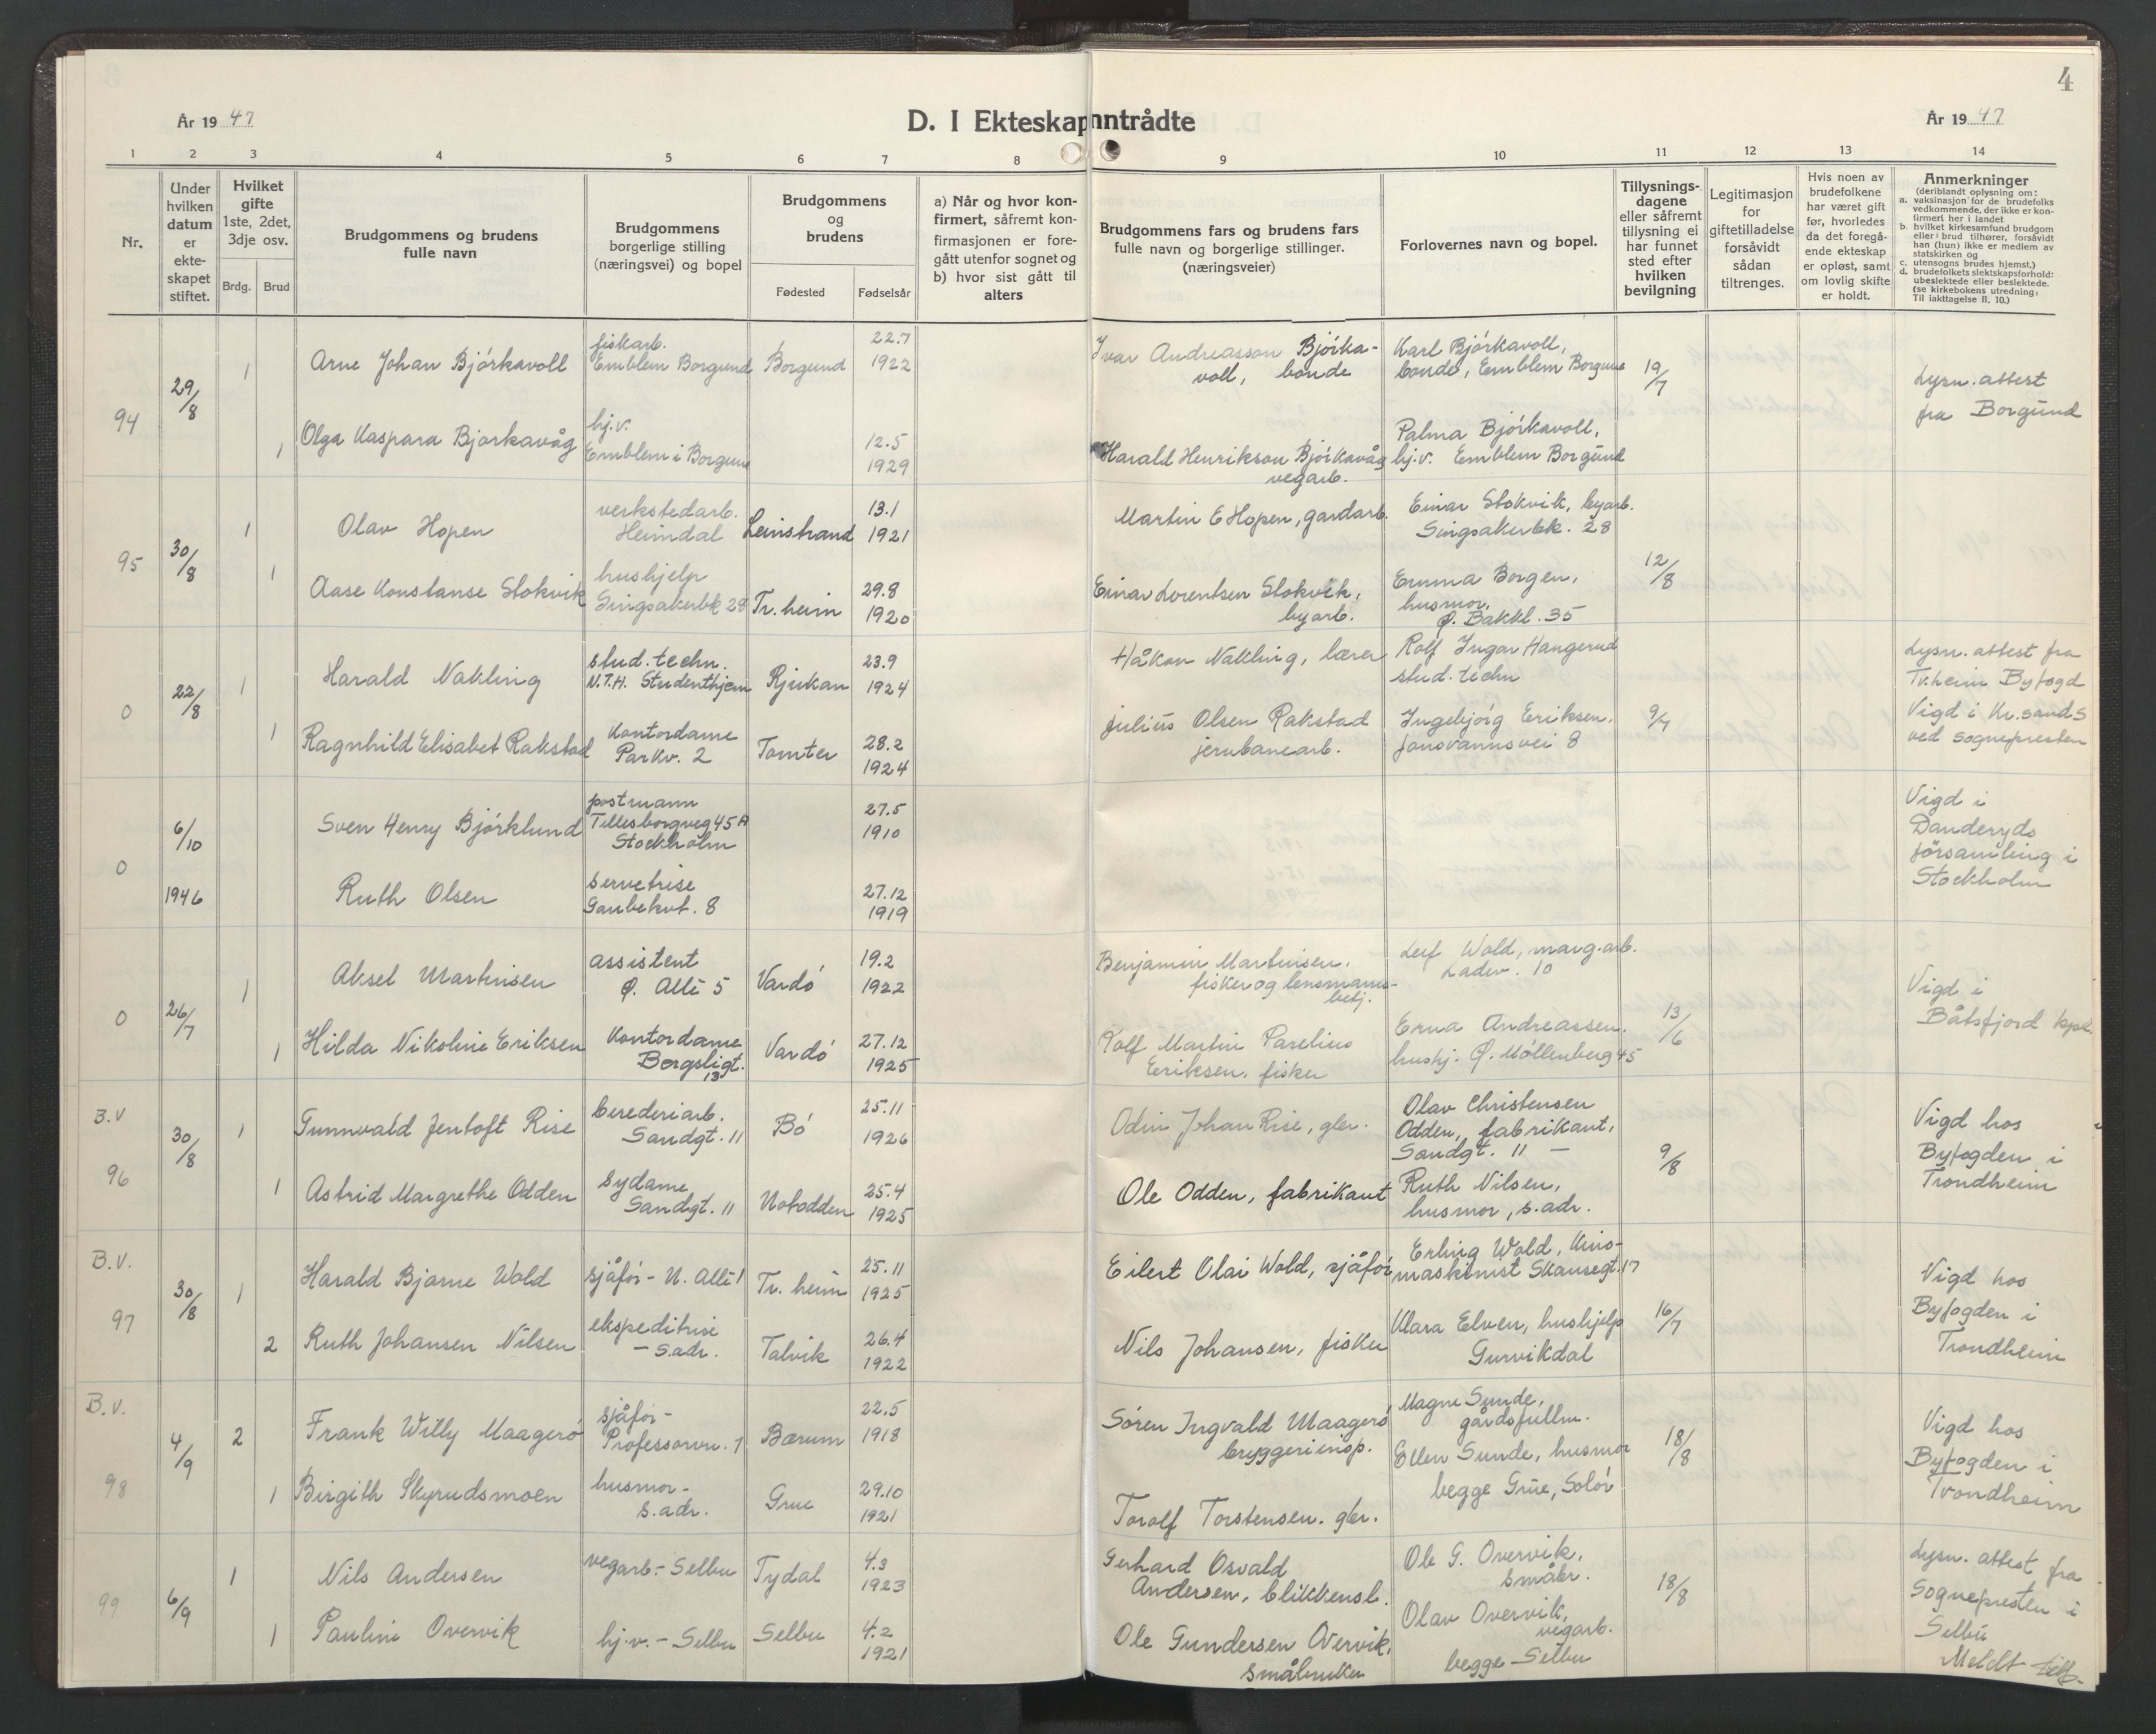 4
År 19 47
D. I Ekteskap inntrådte
År 19 47
1 2 3 4 5 6 7 8 9 10 11 12 13 14
Nr.
Under hvilken datum er ekte- skapet stiftet.
Hvilket gifte 1ste, 2det, 3dje osv.
Brdg. Brud
Brudgommens og brudens
fulle navn
Brudgommens
borgerlige stilling
(næringsvei) og bopel
Brudgommens
og
brudens
Fødested Fødselsår
a) Når og hvor kon-
firmert, såfremt kon-
firmasjonen er fore-
gått utenfor sognet og
b) hvor sist gått til
alters
Brudgommens fars og brudens fars
fulle navn og borgerlige stillinger.
(næringsveier)
Forlovernes navn og bopel.
Tillysnings-
dagene
eller såfremt
tillysning ei
har funnet
sted efter
hvilken
bevilgning
Legitimasjon
for
giftetilladelse
forsåvidt
sådan
tiltrenges.
Hvis noen av
brudefolkene
har været gift
før, hvorledes
da det foregå-
ende ekteskap
er opløst, samt
om lovlig skifte
er holdt.
Anmerkninger
(deriblandt oplysning om:
a. vaksinasjon for de brudefolks
vedkommende, der ikke er kon-
firmert her i landet
b. hvilket kirkesamfund brudgom
eller brud tilhører, forsåvidt
han (hun) ikke er medlem av
statskirken og
c. utensogns brudes hjemst.)
d. brudefolkets slektskapsforhold:
ubeslektede eller beslektede.
(se kirkebokens utredning:
Til iakttagelse II. 10.)
94 29/8
1 Arne Johan Björkavoll
fiskarb.
Emblem Borgund Borgund 22.7
1922
Ivar Andreasson Björka-
voll, bonde
Karl Björkavoll,
bonde, Emblem Borgund
19/7
Lysn. attest
fra Borgund
1 Olga Kaspara Bjørkavåg
hj.v.
Emblem i Borgund
12.5
1929
Harald Henrikson Björkavåg
vegarb.
Palma Björkavoll,
hj.v. Emblem Borgund
95 30/8
1 Olav Hopen
verkstedarb.
Heimdal Leinstrand 13.1
1921
Martin E Hopen, gardarb.
Einar Stokvik, byarb.
Singsakerbk. 28
12/8
1 Aase Konstanse Stokvik
hushjelp
Singsakerbk 28 Tr.heim 29.8
1920
Einar Lorentsen Stokvik,
byarb.
Emma Borgen,
husmor,
Ø. Bakkl. 35
0 22/8
1 Harald Nakling
stud. techn.
N.T.H. Studenthjem Rjukan 23.9
1924
Håkon Nakling, lærer
Rolf Ingar Haugerud
stud. techn
9/7
Lysn. attest fra
Tr.heim Byfogd
Vigd i Kr.sand S
ved sognepresten
1 Ragnhild Elisabet Rakstad
Kontordame
Parkv. 2 Tomter 28.2
1924
Julius Olsen Rakstad
jernbanearb.
Ingebjörg Eriksen,
Jonsvannsvei 8
0 6/10
1946
Sven Henry Björklund
postmann
Tellusborgveg 45 A
Stockholm
27.5
1910
Vigd i
Danderyds
församling i
Stockholm
Ruth Olsen
servetrise
Gaubekvt. 8
27.12
1919
0 26/7
1 Aksel Martinsen
assistent
Ø. Allé 5 Vardö 19.2
1922
Benjamin Martinsen,
fisker og lensmanns-
betj.
Leif Wold, marg.arb.
Ladev. 10
13/6
Vigd i
Båtsfjord kpl.
1 Hilda Nikoline Eriksen
Kontordame
Bergsligt.
13
Vardö 27.12
1925
Rolf Martin Parelius
Eriksen, fisker
Erna Andreassen,
hushj. Ø. Möllenberg 45
B.V
96 30/8
1 Gunnvald Jentoft Rise
berederiarb.
Sandgt. 11 Bö 25.11
1926
Odin Johan Rise, gbr.
Olav Christensen
Odden, fabrikant,
Sandgt. 11 —
9/8
Vigd hos
Byfogden i
Trondheim
1 Astrid Margrethe Odden
sydame
Sandgt. 11 Notodden 25.4
1925
Ole Odden, fabrikant
Ruth Nilsen,
husmor, s.adr.
B.V.
97 30/8
1 Harald Bjarne Wold
sjåför - N. Allé 1 Tr. heim 25.11
1925
Eilert Olai Wold, sjåför
Erling Wold, kino-
maskinist Skansegt. 17
16/7
Vigd hos
Byfogden i
Trondheim
2 Ruth Johansen Nilsen
ekspeditrise
— s.adr. Talvik 26.4
1922
Nils Johansen, fisker
Klara Elven, hushjelp
Gurvikdal
B.V.
98 4/9
2 Frank Willy Maagerö
sjåför -
Professorsv. 1 Bærum 22.5
1918
Sören Ingvald Maagerö
bryggeriinsp.
Magne Sunde,
gårdsfullm.
18/8
Vigd hos
Byfogden i
Trondheim
1 Birgith Skyrudsmoen
husmor -
s.adr. Grue 29.10
1921
Torolf Torstensen. gbr.
Ellen Sunde, husmor
begge Grue, Solör
99 6/9
1 Nils Andersen
vegarb. - Selbu Tydal 4.3
1923
Gerhard Osvald
Andersen, blikkensl.
Ole G. Overvik,
småbr.
18/8
Lysn. attest fra
Sognepresten i
Selbu
Meldt
1 Pauline Overvik
hj.v. - Selbu Selbu 4.2
1921
Ole Gundersen Overvik,
småbruker
Olav Overvik,
vegarb.
begge Selbu